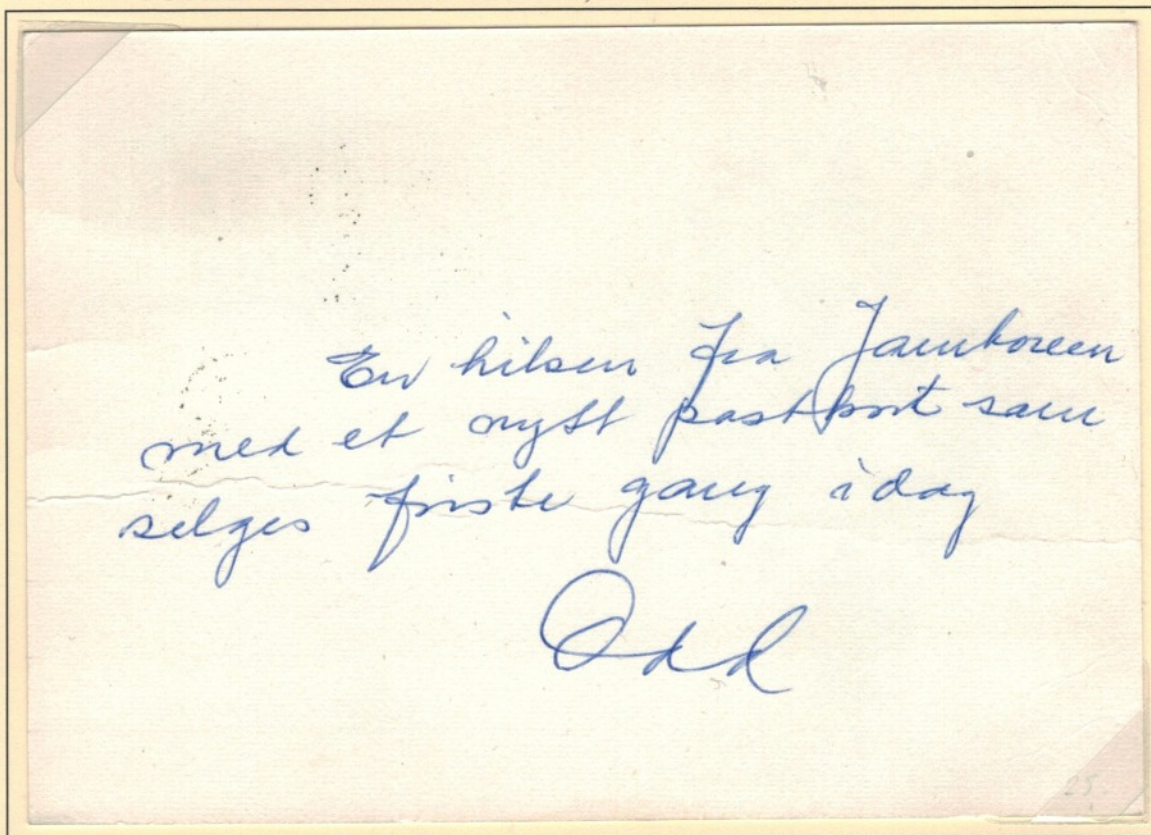 En hilsen fra Jamboreen
med et nytt postkort som
selges første gang idag
Odd
25.